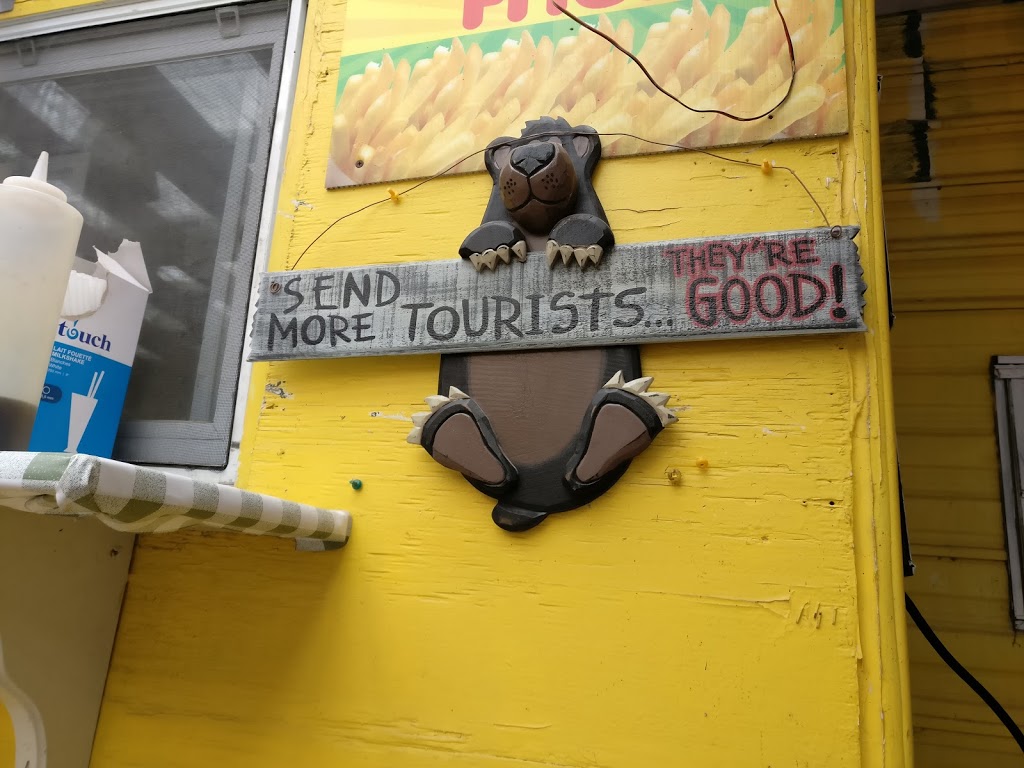 SEND
MORE TOURISTS...
THEY'RE
GOOD!
touch
LAIT FOUETTÉ
MILKSHAKE